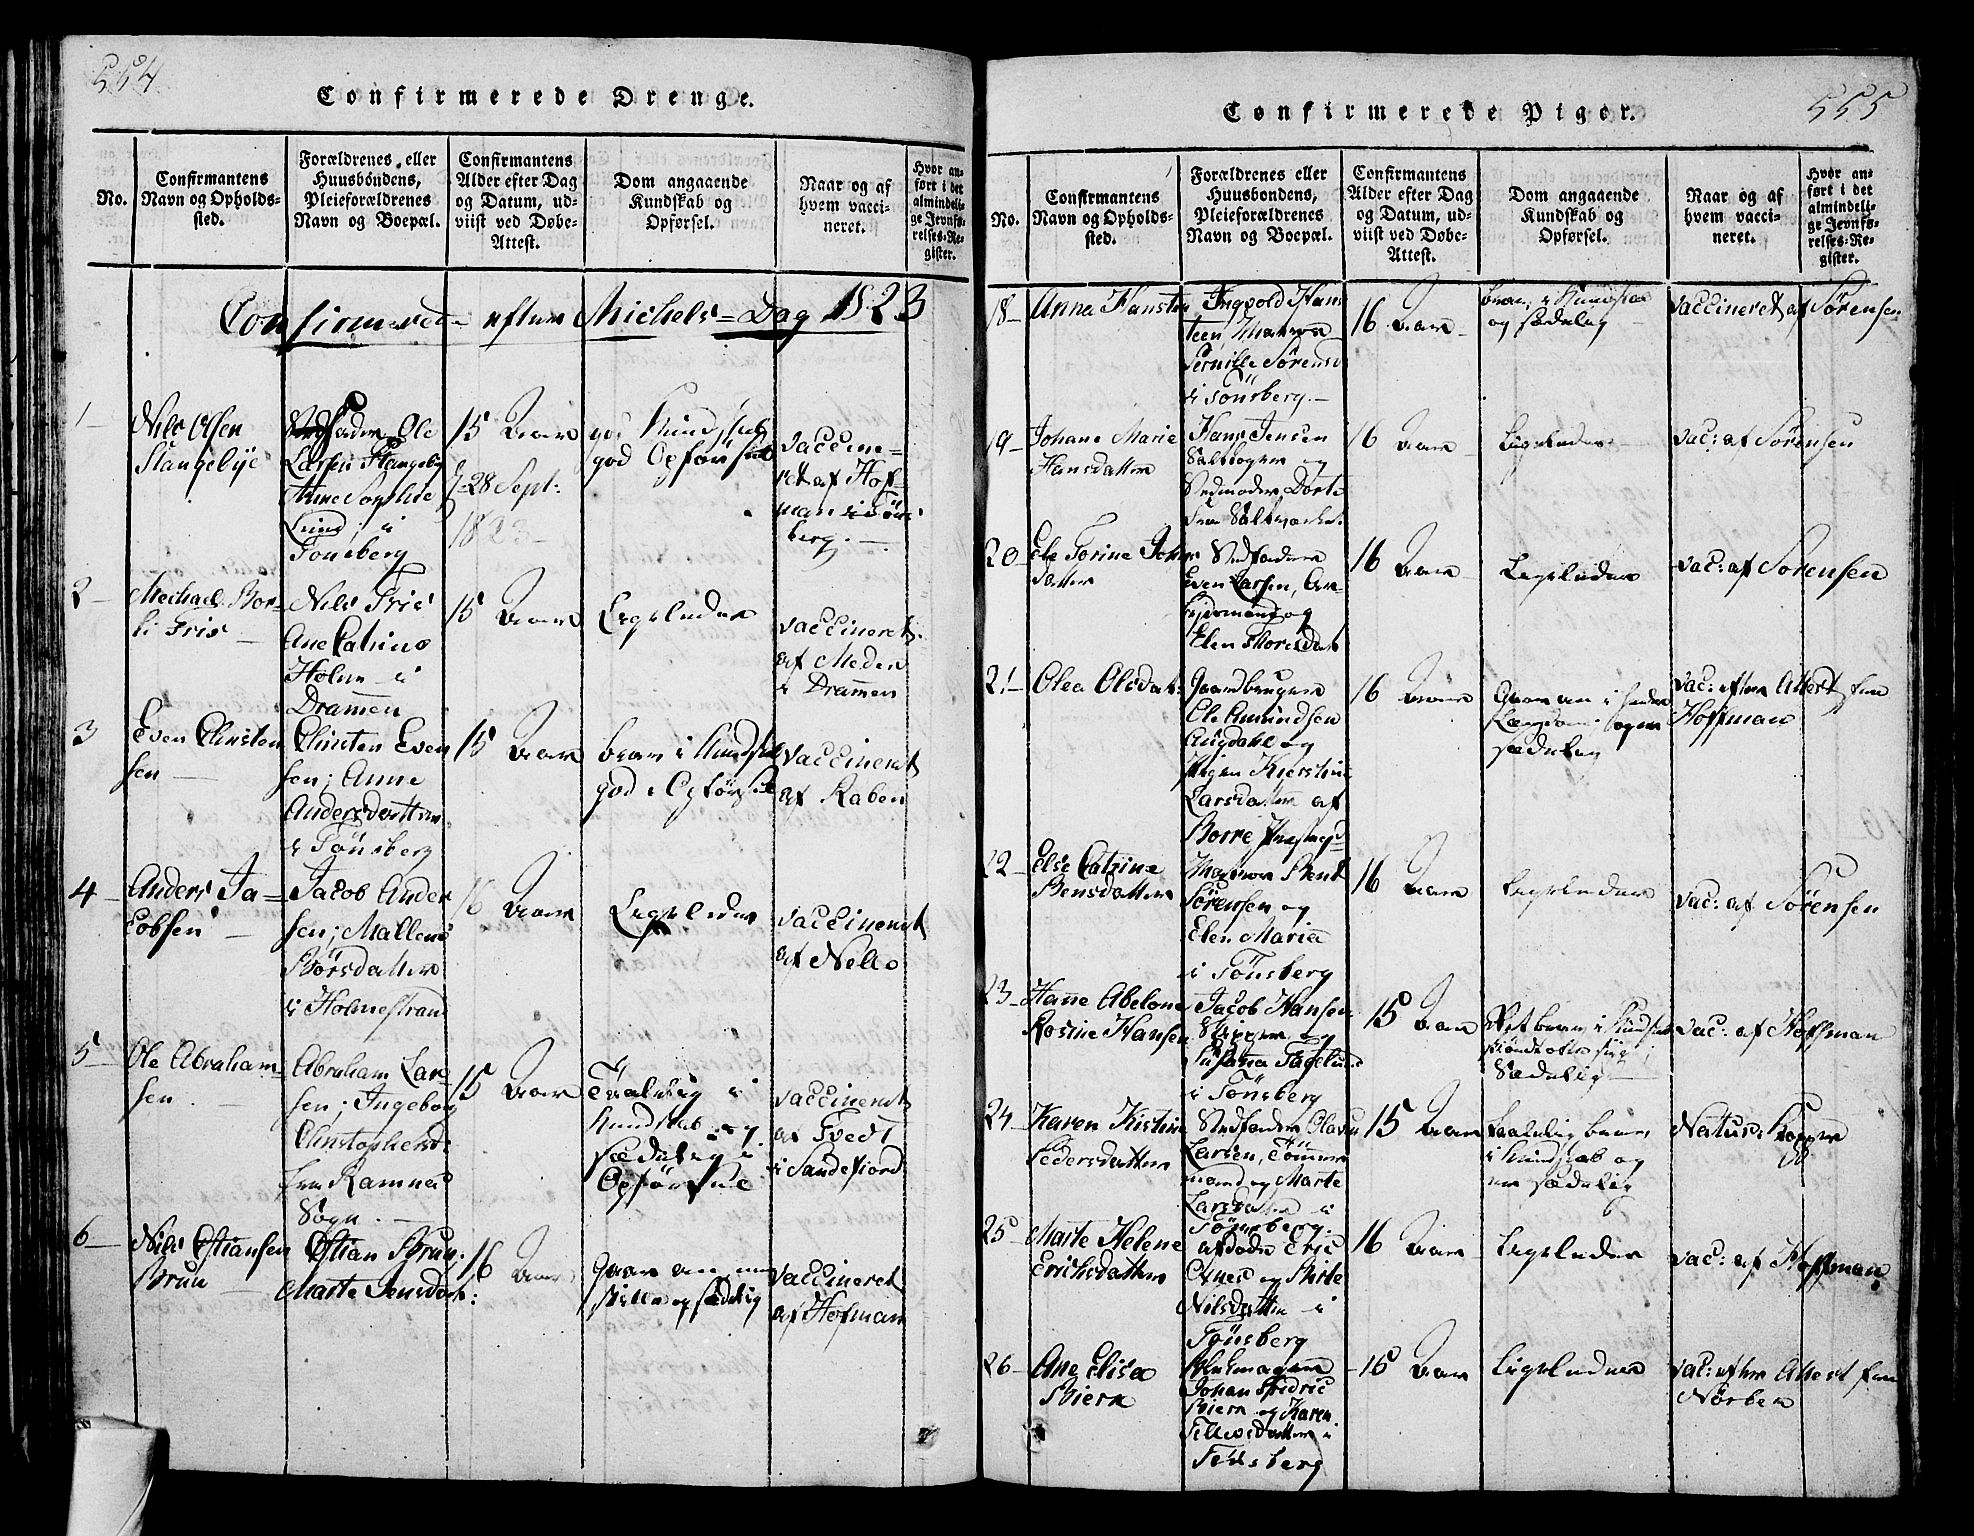 554
Confirmerede Drenge.
No.
Confirmantens
Navn og Opholds-
sted.
Forældrenes eller
Huusbóndens,
Pleieforældrenes
Navn og Boepæl.
Confirmantens
Alder efter Dag
og Datum, ud-
viist ved Døbe-
Attest.
Dom angaaende
Kundskab og
Opførsel.
Naar og af
hvem vacci-
neret.
Hvor an-
ført i det
almindeli-
ge Jevnfø-
relses-Re-
gister.
Confirmerede efter Michels-Dag 1823
1
Nils Olsen
Stangebÿe
Stedfader Ole
Larsen Stangeby
Anne Sophie
Lund i
Tonsberg
15 Aar
28 Sept:
1823
god Kundskab
god Opførsel
Vaccine-
ret af Hof-
man i Tøns
berg.
2
Mechael Bor-
Friis
Nils Friis
Ane Catrine
Holm i
Drammen
15 Aar
Ligeledes
vaccineret
af Meden
i Drammen
3
Even Christen
sen
Christen Even
sen; Anne
Andersdatter
i Tønsberg
15 Aar
brav i Kundskab
god i Opførsel
vaccineret
af Raben
4
Anders Ja=
cobsen
Jacob Ander
sen; Mallene
Børsdatter
i Holmestrand
16 Aar
Ligeledes
vaccineret
af Nello
5
Ole Abraham-
sen
Abraham Lar-
sen; Ingeborg
Christophersd:
fra Ramnes
Sogn.
15 Aar
Taalelig i
Kundskab og
sædelig i
Opførsel
vaccineret
af Tvedt
i Sandefiord
6
Nils Estiansen
Brun
Estian Brun;
Marte Jensdat:
16 Aar
Gaar an men
stille og sædelig
vaccineret
af Hofman
Confirmerede Piger.
555
No.
Confirmantens
Navn og Opholds-
sted.
Forældrenes eller
Huusbondens,
Pleieforældrenes
Navn og Boepæl.
Confirmantens
Alder efter Dag
og Datum, ud-
viist ved Døbe-
Attest.
Dom angaaende
Kundskab og
Opførsel.
Naar og af
hvem vacci-
neret.
Hvor an-
ført i det
almindeli-
ge Jevnfø-
relses-Re-
gister.
18
Anna Hansteen
Ingvold Han
steen, Matros
Pernille Sørensd
i Tönsberg.
16 Aar
brav i Kundskab
og sædelig
vaccineret af Sørensen
19
Johane Marie
Hansdatter
Hans Jensen
og
Stedmoder Dorte
fra Saltværket
16 Aar
Ligeledes
vac: af Sørensen
20
Ele Torine Johns
datter
Stedfader
Even Larsen, Ar
beidsmand og
Elen Thoresdat
16 Aar
Ligeledes
vac: af Sørensen
21
Olea Olsdat:
Gaardbruger
Ole Amundsen
Augdahl og
Pigen Kierstine
Larsdatter af
Borre Præstegd
16 Aar
Gaar an i
sædelig
vac: efter Attest fra
Hoffman
22
Else Catrine
Bensdatter
Matros Bent
Sørensen og
Elen Maria
i Tönsberg
16 Aar
Ligeledes
vac: af Sörensen
23
Hanne Abelone
Rosine Hansen
Jacob Hansen
Skipper og
Susanna Fagelund
i Tönsberg
15 Aar
Ret brav i Kundskab
Sædelig
vac: af Hoffman
24
Karen Kistine
Pedersdatter
Stedfader Olaus
Larsen, Tömmer
mand og Marte
Larsdatter i
Tönsberg.
15 Aar
taalelig brav
i Kundskab og
sædelig
Naturl: Kopper
25
Marte Helene
Erichsdatter
afdøde Eric
og Birte
Nilsdatter i
Tönsberg
16 Aar
Ligeledes
vac: af Hoffman
26
Ane Elisa
Bierk
Johan Fredric
Bierk og Karen
Tellevsdatter i
Tönsberg
15 Aar
Ligeledes
vac: efter Attest fra
Nörben